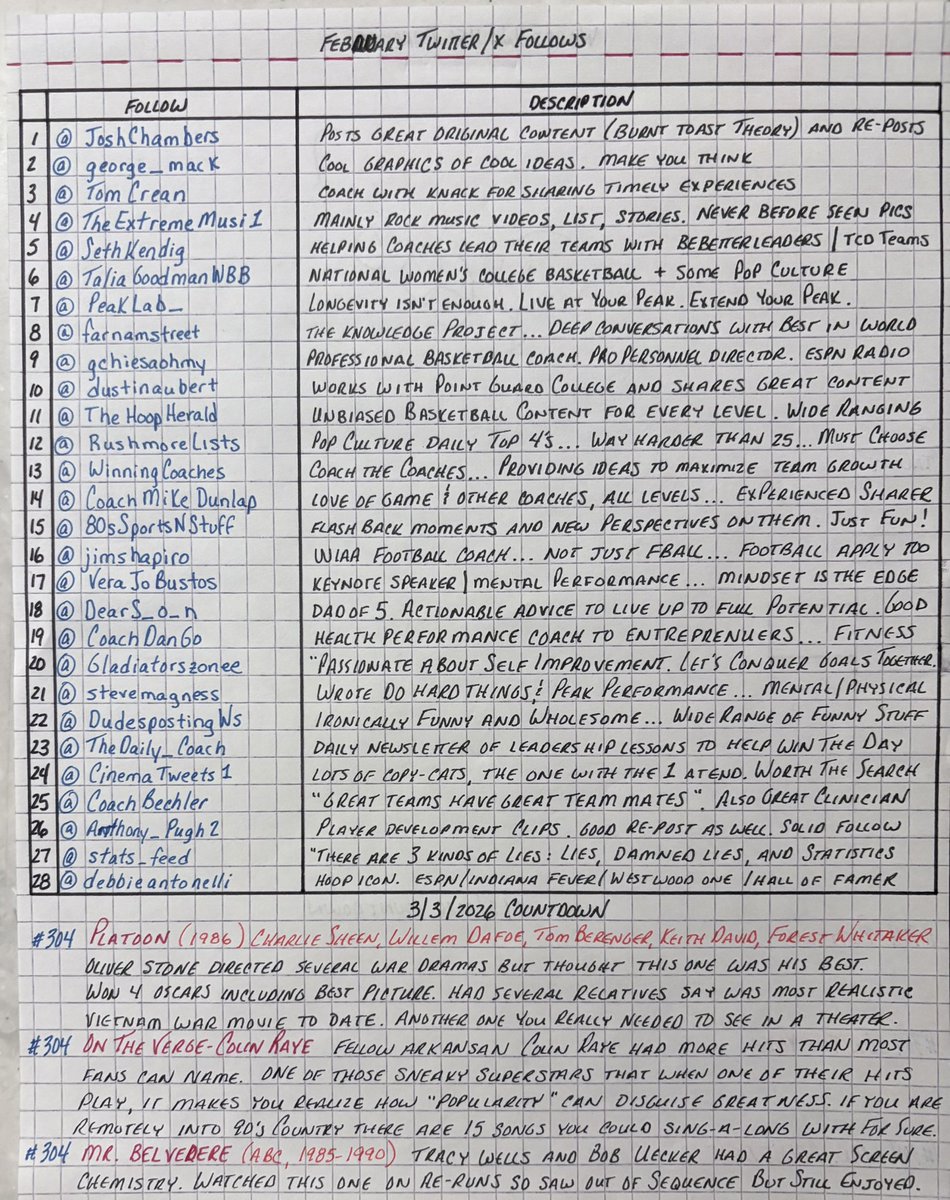 FEBRUARY TWITTER/X FOLLOWS
FOLLOW DESCRIPTION
1 @ JoshChambers POSTS GREAT ORIGINAL CONTENT (BURNT TOAST THEORY) AND RE-POSTS
2 @ george_mack COOL GRAPHICS OF COOL IDEAS. MAKE YOU THINK
3 @ TomCrean COACH WITH KNACK FOR SHARING TIMELY EXPERIENCES
4 @ TheExtremeMusi1 MAINLY ROCK MUSIC VIDEOS, LIST, STORIES. NEVER BEFORE SEEN PICS
5 @ SethKendig HELPING COACHES LEAD THEIR TEAMS WITH BEBETTERLEADERS | TCD TEAMS
6 @ TaliaGoodmanWBB NATIONAL WOMEN'S COLLEGE BASKETBALL + SOME POP CULTURE
7 @ PeakLab_ LONGEVITY ISN'T ENOUGH. LIVE AT YOUR PEAK. EXTEND YOUR PEAK.
8 @ farnamstreet THE KNOWLEDGE PROJECT... DEEP CONVERSATIONS WITH BEST IN WORLD
9 @ gchiesaohmy PROFESSIONAL BASKETBALL COACH. PRO PERSONNEL DIRECTOR. ESPN RADIO
10 @ dustinaubert WORKS WITH POINT GUARD COLLEGE AND SHARES GREAT CONTENT
11 @ TheHoopHerald UNBIASED BASKETBALL CONTENT FOR EVERY LEVEL. WIDE RANGING
12 @ RushmoreLists POP CULTURE DAILY TOP 4'S... WAY HARDER THAN 25... MUST CHOOSE
13 @ WinningCoaches COACH THE COACHES... PROVIDING IDEAS TO MAXIMIZE TEAM GROWTH
14 @ CoachMikeDunlap LOVE OF GAME & OTHER COACHES, ALL LEVELS... EXPERIENCED SHARER
15 @ 80sSportsNStuff FLASH BACK MOMENTS AND NEW PERSPECTIVES ON THEM. JUST FUN!
16 @ jimshapiro WIAA FOOTBALL COACH... NOT JUST FBALL... FOOTBALL APPLY TOO
17 @ VeraJoBustos KEYNOTE SPEAKER | MENTAL PERFORMANCE... MINDSET IS THE EDGE
18 @ DearS_o_n DAD OF 5. ACTIONABLE ADVICE TO LIVE UP TO FULL POTENTIAL. GOOD
19 @ CoachDanGo HEALTH PERFORMANCE COACH TO ENTREPRENUERS... FITNESS
20 @ Gladiatorszonee "PASSIONATE ABOUT SELF IMPROVEMENT. LET'S CONQUER GOALS TOGETHER.
21 @ stevemagness WROTE DO HARD THINGS & PEAK PERFORMANCE... MENTAL/PHYSICAL
22 @ DudespostingWs IRONICALLY FUNNY AND WHOLESOME... WIDE RANGE OF FUNNY STUFF
23 @ TheDaily_Coach DAILY NEWSLETTER OF LEADERSHIP LESSONS TO HELP WIN THE DAY
24 @ CinemaTweets1 LOTS OF COPY-CATS, THE ONE WITH THE 1 AT END. WORTH THE SEARCH
25 @ CoachBechler "GREAT TEAMS HAVE GREAT TEAM MATES". ALSO GREAT CLINICIAN
26 @ Anthony_Pugh2 PLAYER DEVELOPMENT CLIPS. GOOD RE-POST AS WELL. SOLID FOLLOW
27 @ stats_feed "THERE ARE 3 KINDS OF LIES: LIES, DAMNED LIES, AND STATISTICS
28 @ debbieantonelli HOOP ICON. ESPN/INDIANA FEVER/WESTWOOD ONE/HALL OF FAMER
3/3/2026 COUNTDOWN
#304 PLATOON (1986) CHARLIE SHEEN, WILLEM DAFOE, TOM BERENGER, KEITH DAVID, FOREST WHITAKER
OLIVER STONE DIRECTED SEVERAL WAR DRAMAS BUT THOUGHT THIS ONE WAS HIS BEST.
WON 4 OSCARS INCLUDING BEST PICTURE. HAD SEVERAL RELATIVES SAY WAS MOST REALISTIC
VIETNAM WAR MOVIE TO DATE. ANOTHER ONE YOU REALLY NEEDED TO SEE IN A THEATER.
#304 ON THE VERGE-COLIN RAYE FELLOW ARKANSAN COLIN RAYE HAD MORE HITS THAN MOST
FANS CAN NAME. ONE OF THOSE SNEAKY SUPERSTARS THAT WHEN ONE OF THEIR HITS
PLAY, IT MAKES YOU REALIZE HOW "POPULARITY" CAN DISGUISE GREATNESS. IF YOU ARE
REMOTELY INTO 90'S COUNTRY THERE ARE 15 SONGS YOU COULD SING-A-LONG WITH FOR SURE.
#304 MR. BELVEDERE (ABC, 1985-1990) TRACY WELLS AND BOB UECKER HAD A GREAT SCREEN
CHEMISTRY. WATCHED THIS ONE ON RE-RUNS SO SAW OUT OF SEQUENCE BUT STILL ENJOYED.